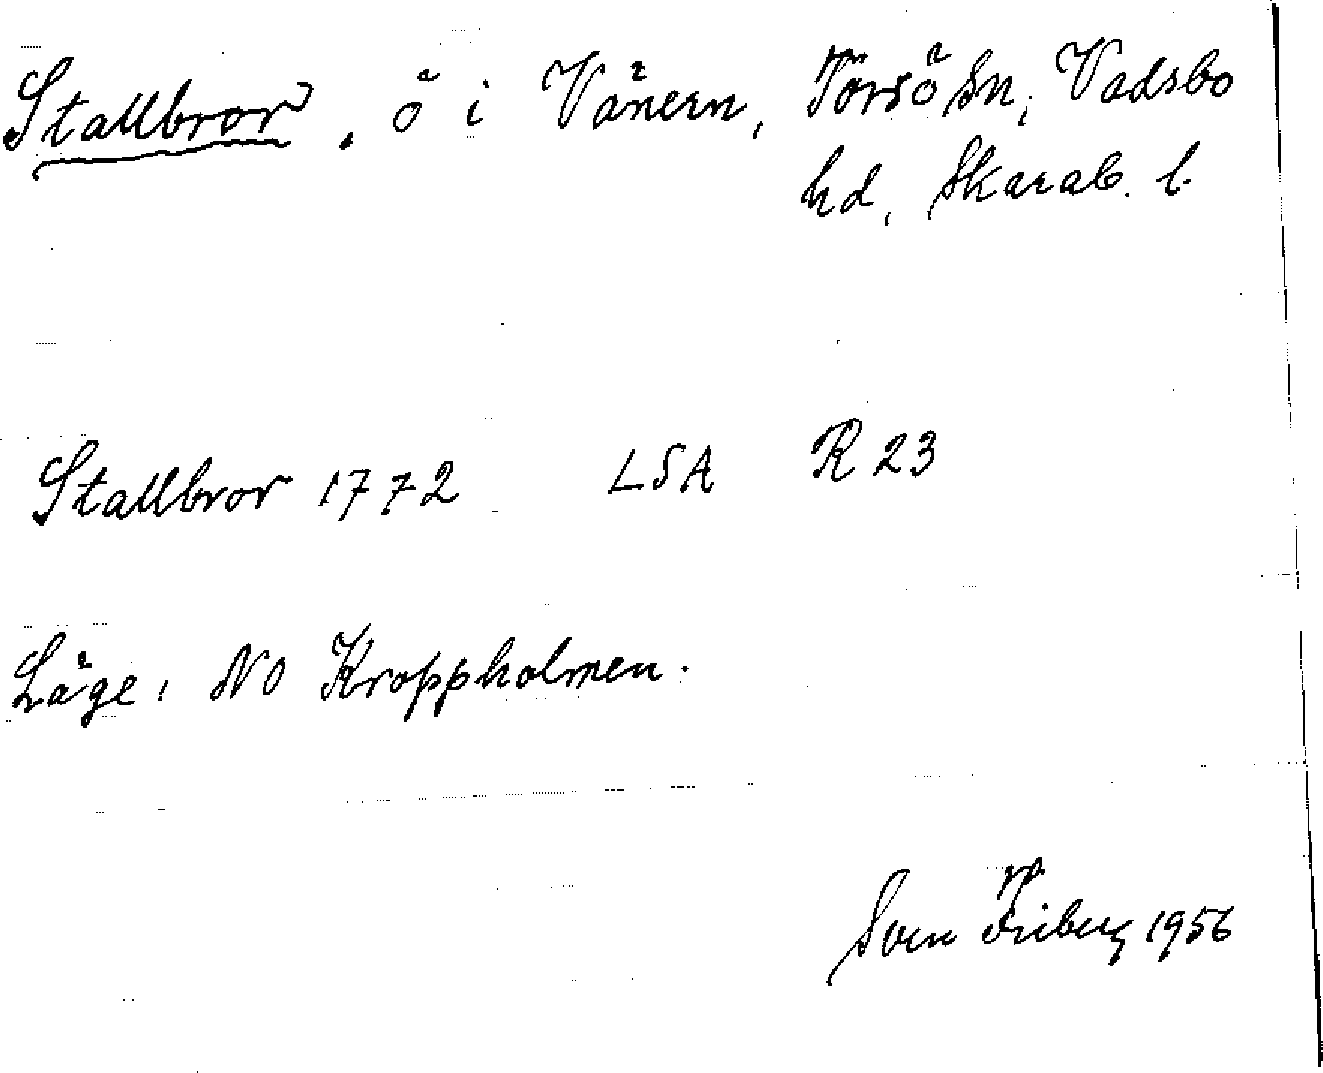 Stallbror, ö i Vänern, Torsö sn, Vadsbo
hd, Skarab. l.
Stallbror 1772 LSA R 23
Läge: NO Kroppholmen.
Sven Friberg 1956